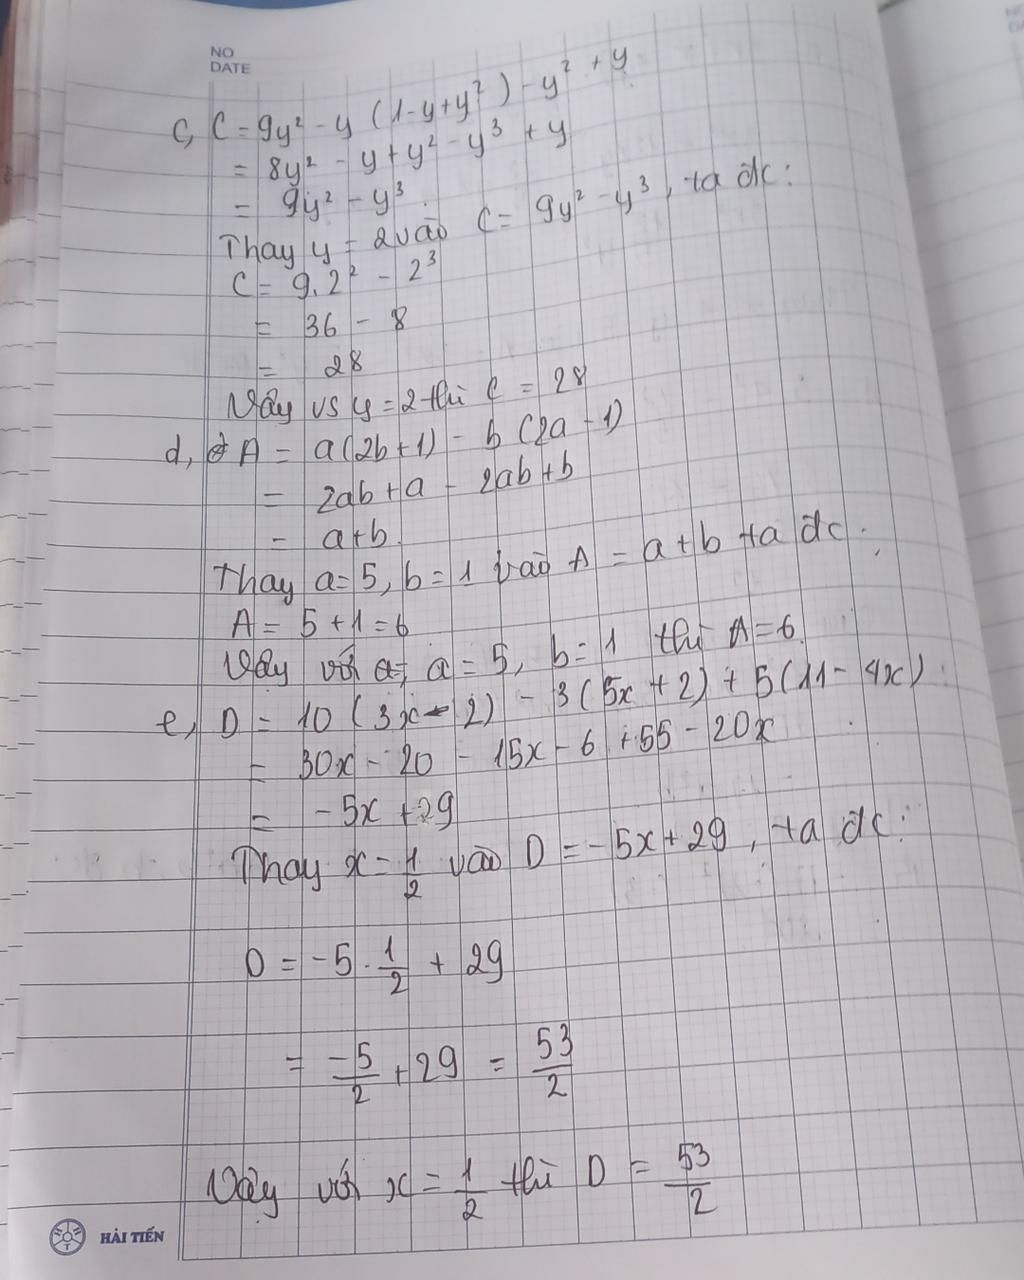 NO
DATE
c, C = 9y² - y (1 - y + y²) - y² + y
= 8y² - y + y² - y³ + y
= 9y² - y³
Thay y = 2 vào C = 9y² - y³, ta đc:
C = 9.2² - 2³
= 36 - 8
= 28
Vậy vs y = 2 thì C = 28
d, A = a(2b + 1) - b (2a - 1)
= 2ab + a - 2ab + b
= a + b
Thay a = 5, b = 1 vào A = a + b ta đc :
A = 5 + 1 = 6
Vậy với a = 5, b = 1 thì A = 6
e, D = 10 (3x - 2) - 3 (5x + 2) + 5 (11 - 4x)
= 30x - 20 - 15x - 6 + 55 - 20x
= -5x + 29
Thay x = 1/2 vào D = -5x + 29, ta đc :
D = -5 . 1/2 + 29
= -5/2 + 29 = 53/2
Vậy với x = 1/2 thì D = 53/2
HẢI TIẾN